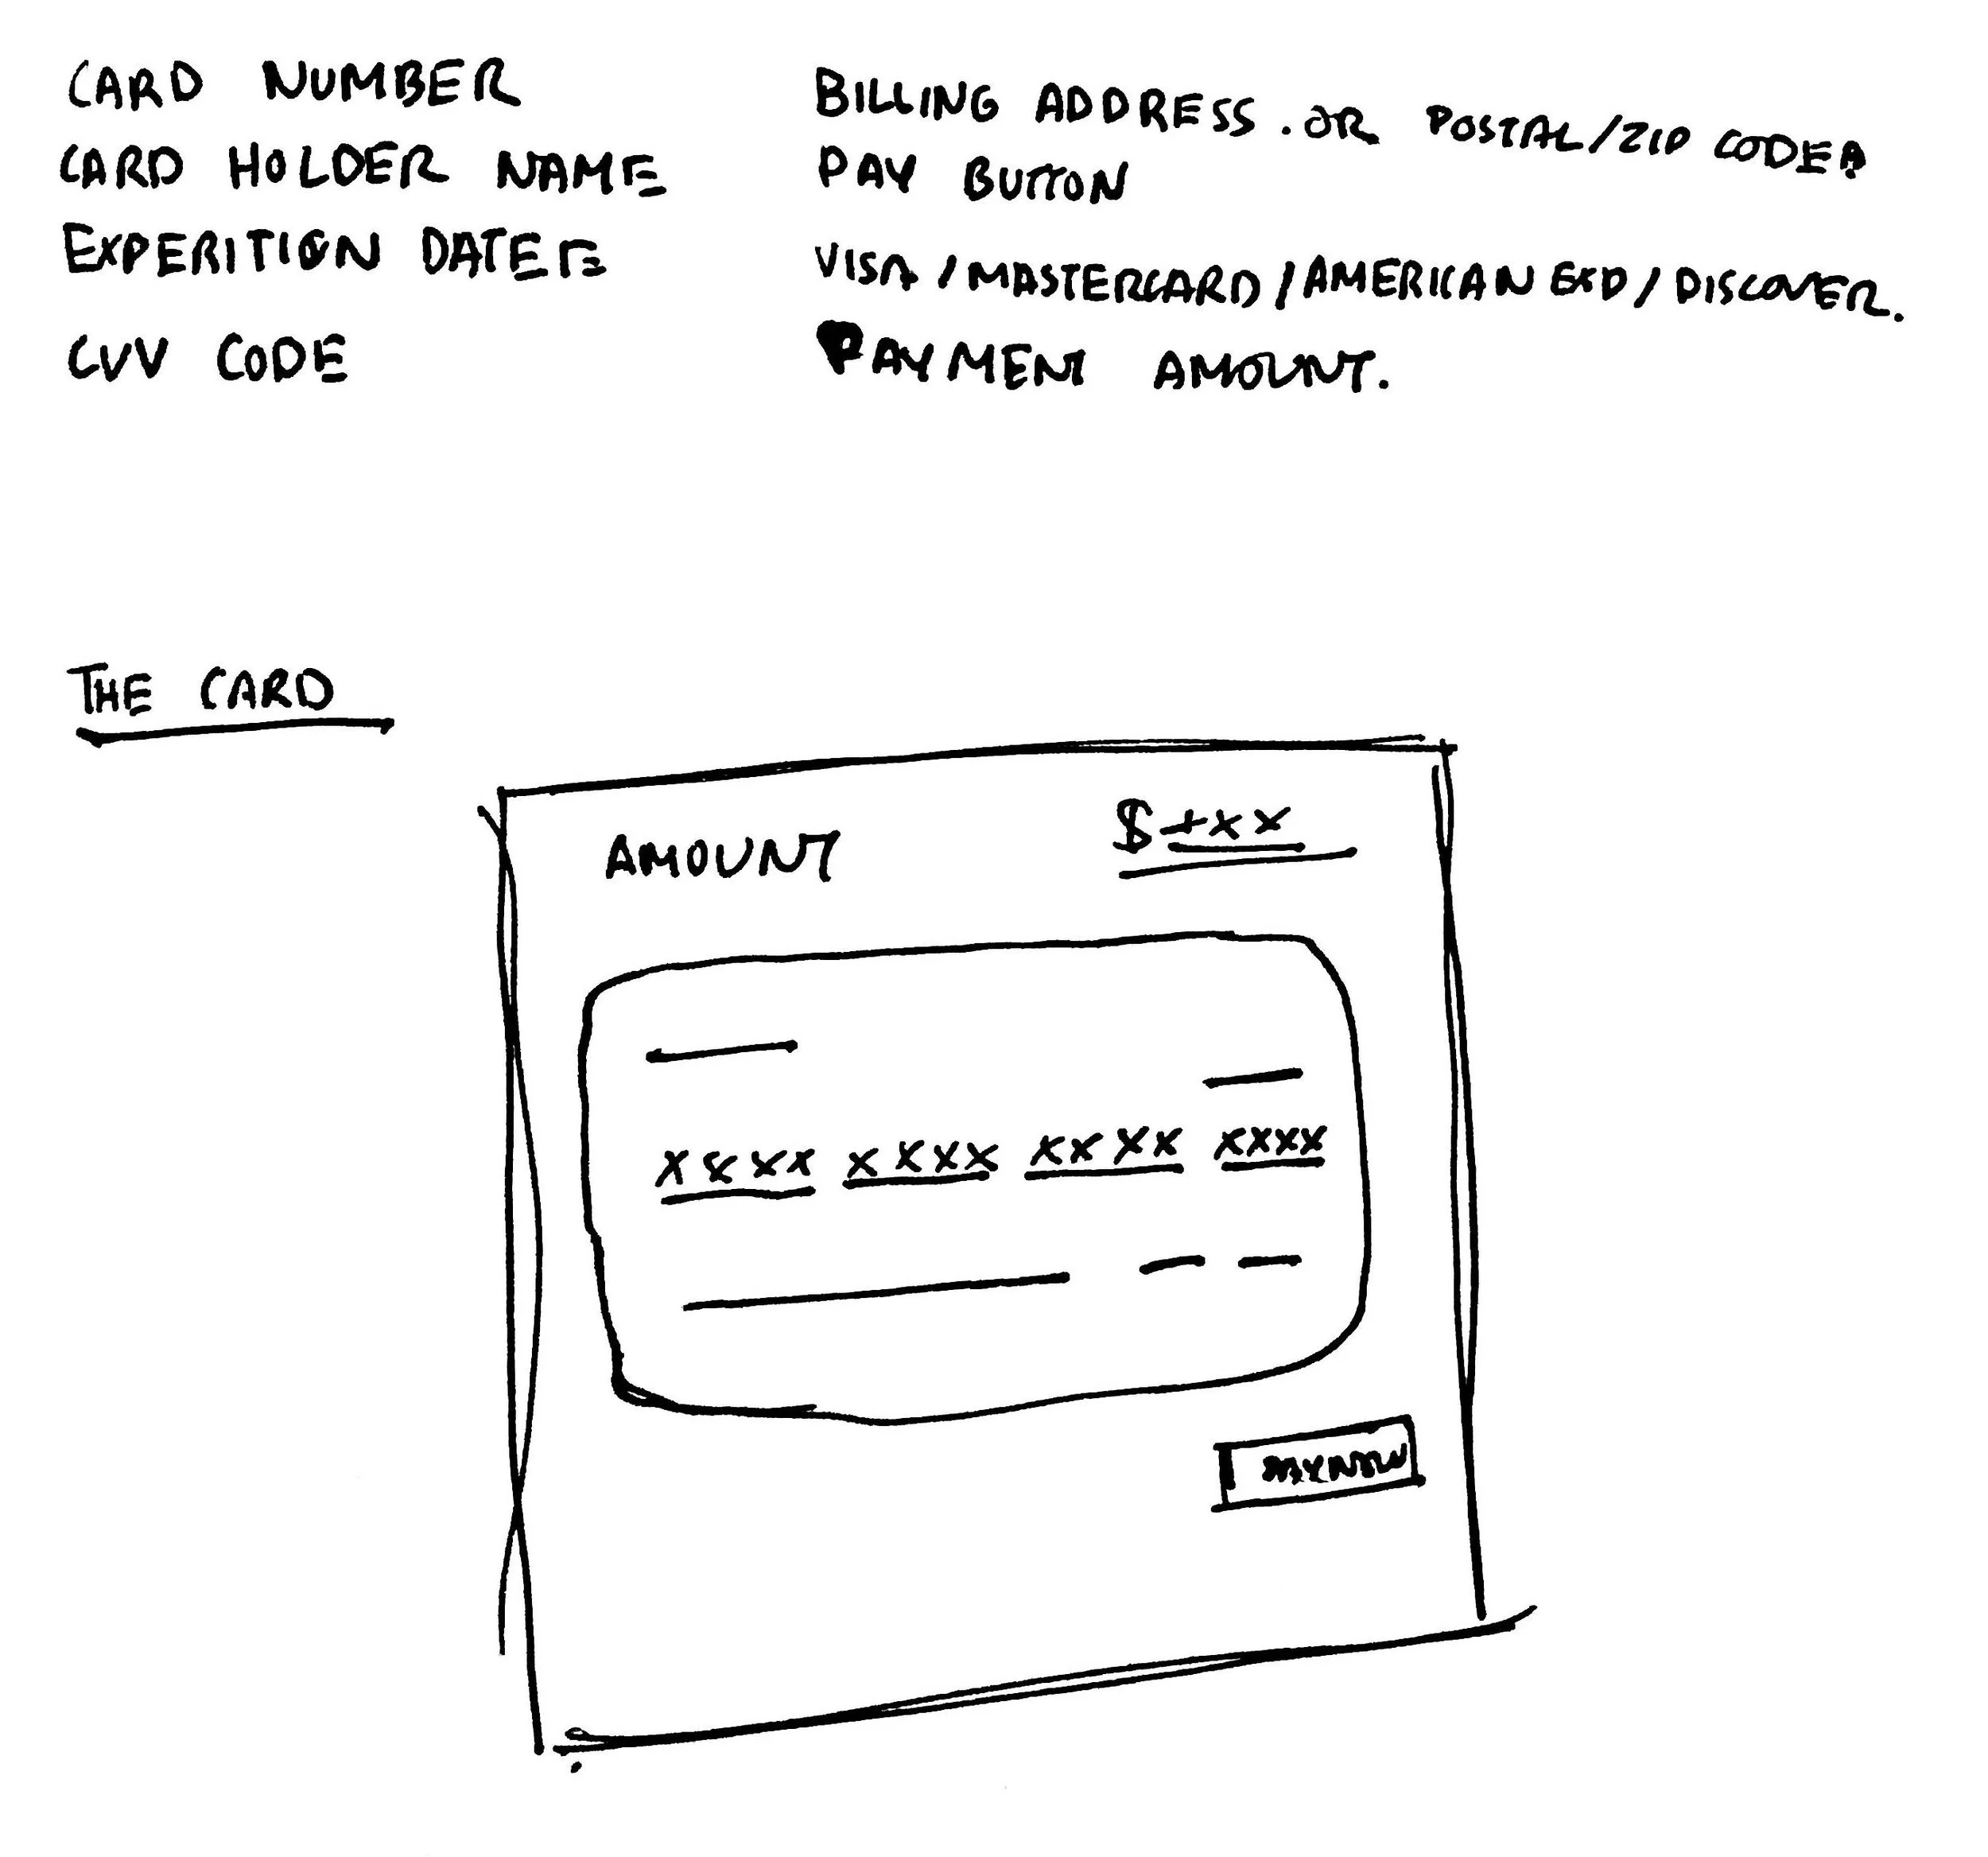 CARD NUMBER
CARD HOLDER NAME
EXPERITION DATE
CVV CODE
BILLING ADDRESS. OR POSTAL/ZIP CODE
PAY BUTTON
VISA / MASTERCARD / AMERICAN EXP / DISCOVER.
PAYMENT AMOUNT.
THE CARD
AMOUNT $ xxx
xxxx xxxx xxxx xxxx